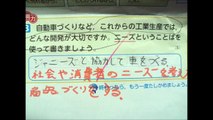 自動車づくりなど、これからの工業生産では、
どんな開発が大切ですか。ニーズということばを
使って書きましょう。
ジャニーズと協力して車をつくる
社会や消費者のニーズを考え
もう一度たしかめましょう。
商品づくりをする。